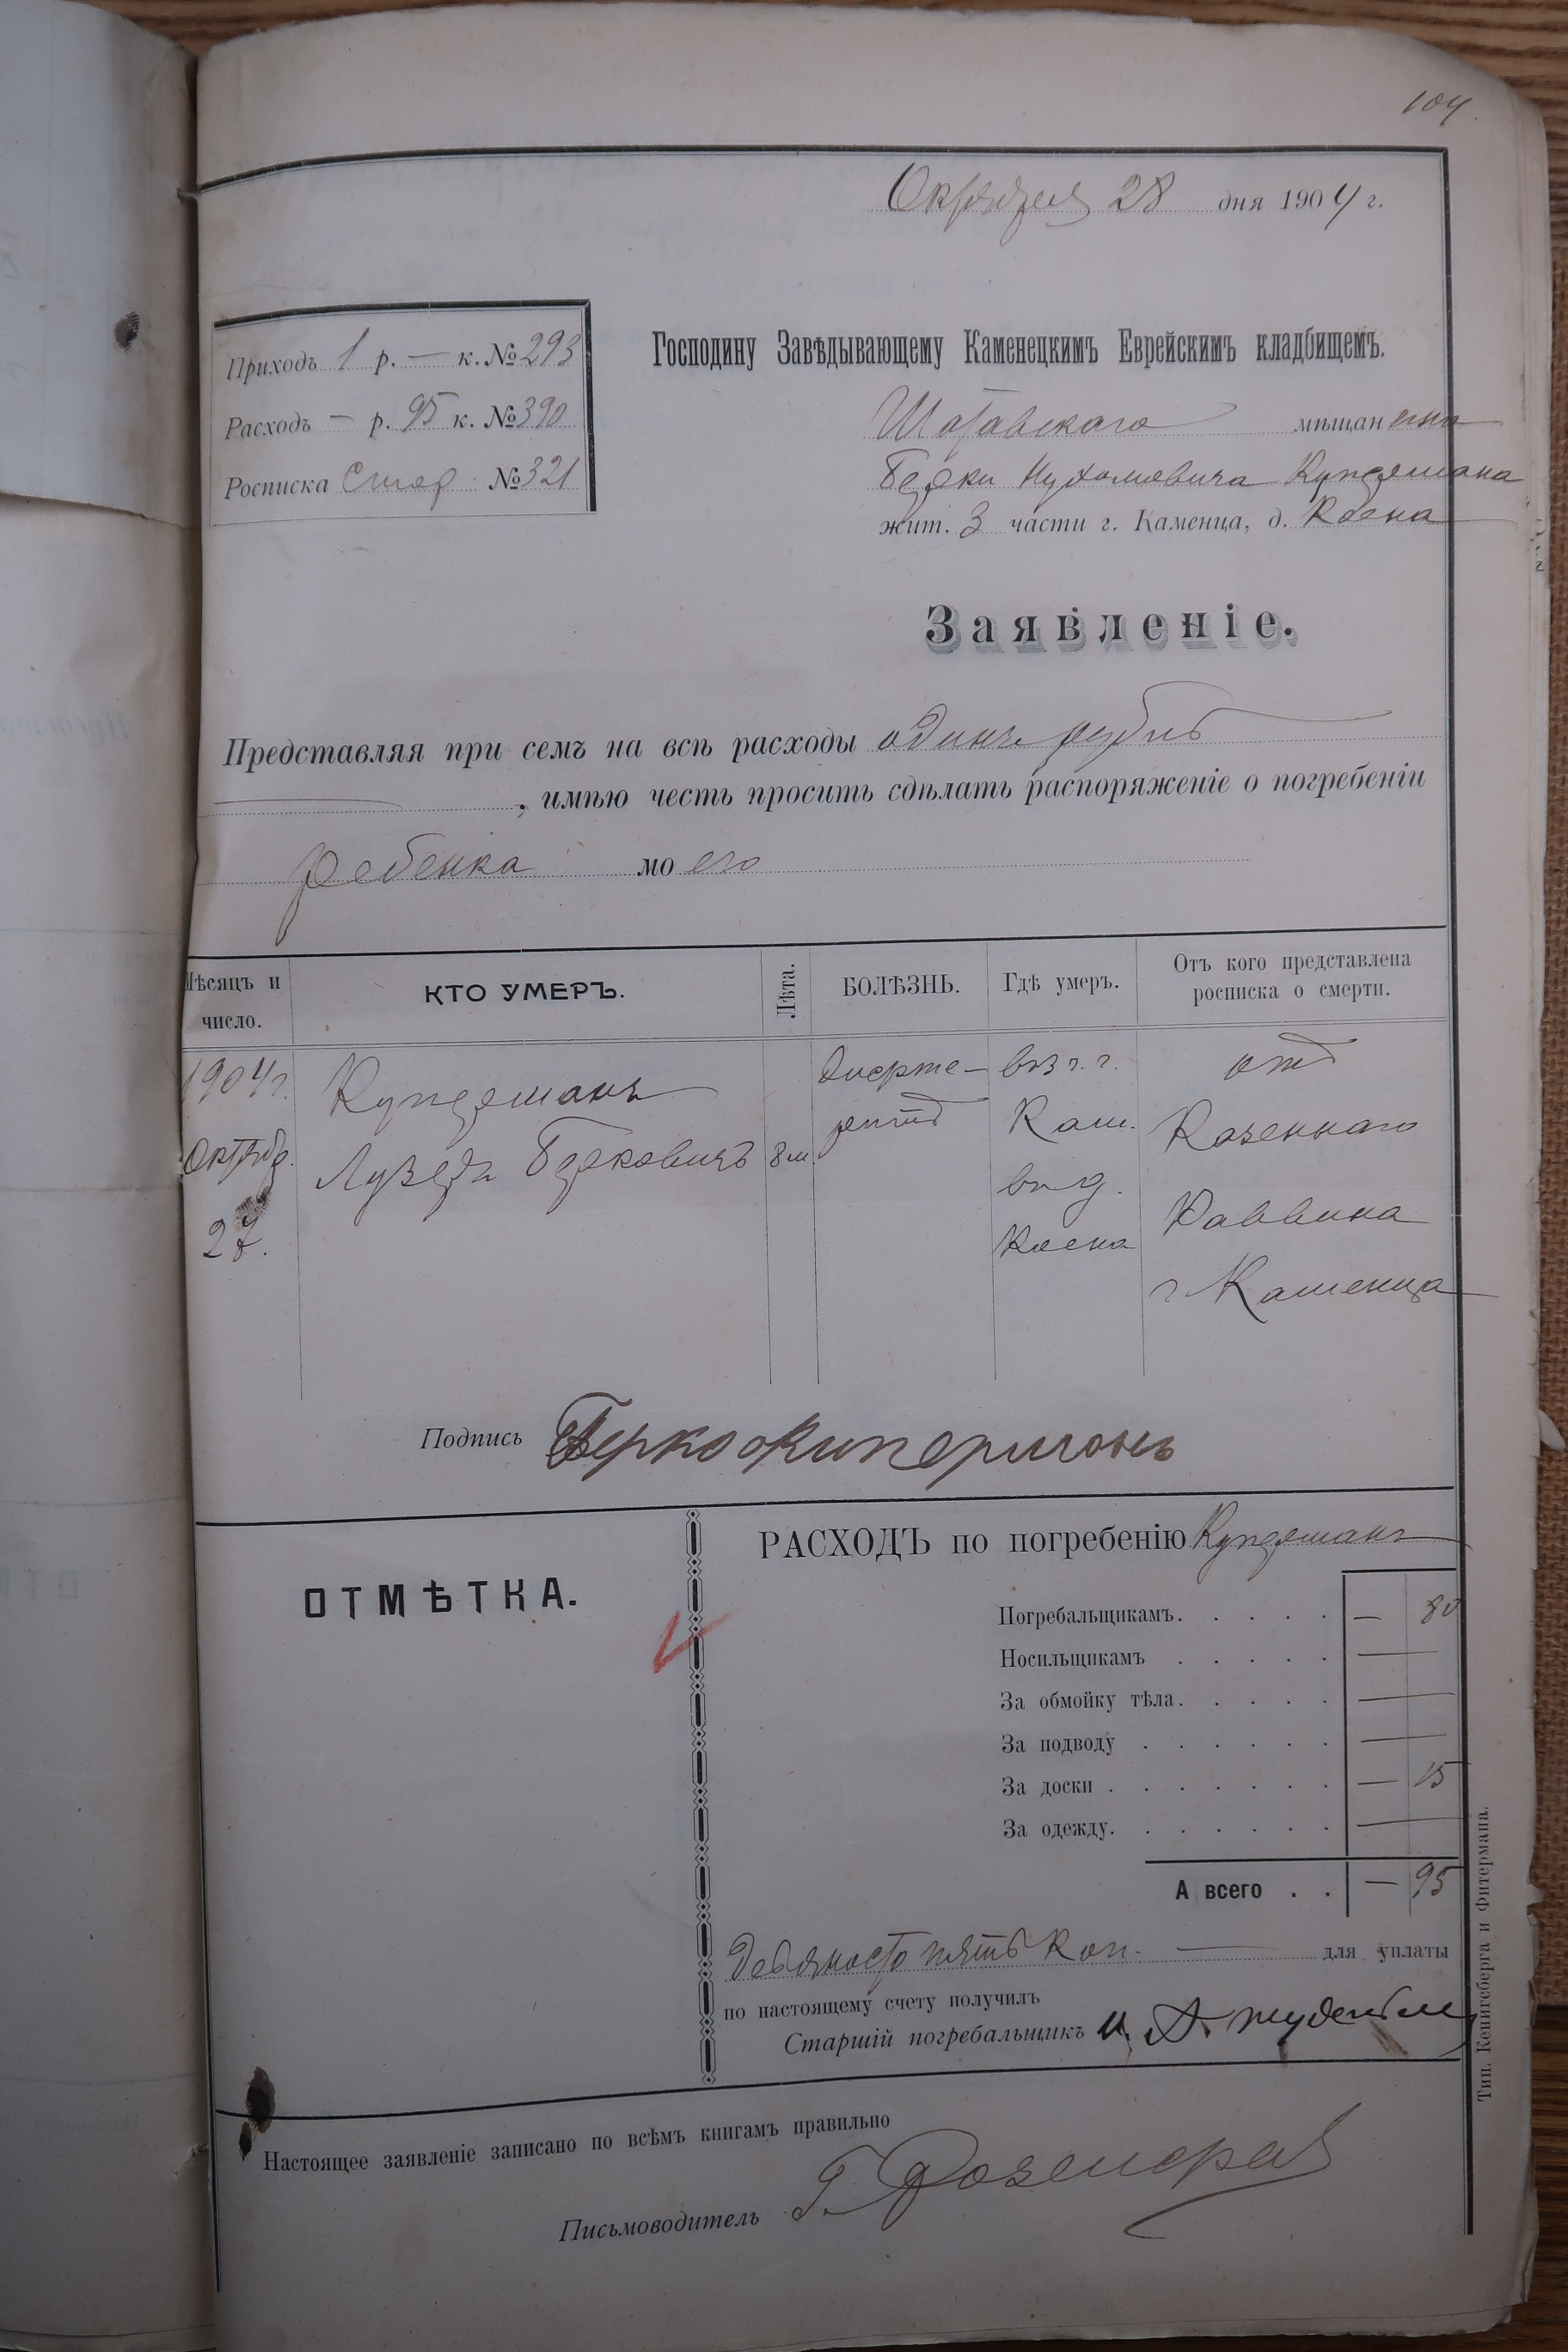 104.
Октября 28 дня 1904 г.
Приходъ 1 р. — к. № 293
Расходъ — р. 95 к. № 390
Росписка № 321
Господину Завѣдывающему Каменецкимъ Еврейскимъ кладбищемъ.
Шатавскаго мѣщанина
Берки Нухимовича Купермана
жит. 3 части г. Каменца, д. Коена
Заявленіе.
Представляя при семъ на всѣ расходы одинъ рубль
, имѣю честь просить сдѣлать распоряженіе о погребеніи
ребенка моего
Мѣсяцъ и число.
КТО УМЕРЪ.
Лѣта.
БОЛѢЗНЬ.
Гдѣ умеръ.
Отъ кого представлена росписка о смерти.
1904 г.
Октябр.
27.
Куперманъ
Лузеръ Берковичъ
8 м.
дифте-
ритъ
въ 3 ч. г.
Кам.
въ д.
Коена
отъ
Казеннаго
Раввина
г. Каменца
Подпись Берко Киперманъ
ОТМѢТКА.
РАСХОДЪ по погребенію Куперманъ
Погребальщикамъ. . . . . — 80
Носильщикамъ . . . . . —
За обмойку тѣла. . . . . —
За подводу . . . . . . —
За доски . . . . . . . — 15
За одежду. . . . . . . —
А всего . . — 95
Девяносто пять коп. — для уплаты
по настоящему счету получилъ
Старшій погребальщикъ
Настоящее заявленіе записано по всѣмъ книгамъ правильно
Письмоводитель Г.
Тип. Кенигсберга и Фитермана.